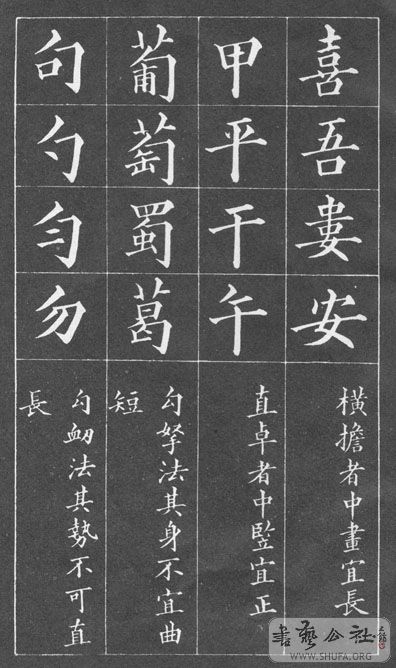 喜吾婁安
橫擔者中畫宜長
甲平干午
直卓者中竪宜正
葡萄蜀葛
勾拏法其身不宜曲
短
句勺勻勿
勾衂法其勢不可直
長
書藝公社
WWW.SHUFA.ORG